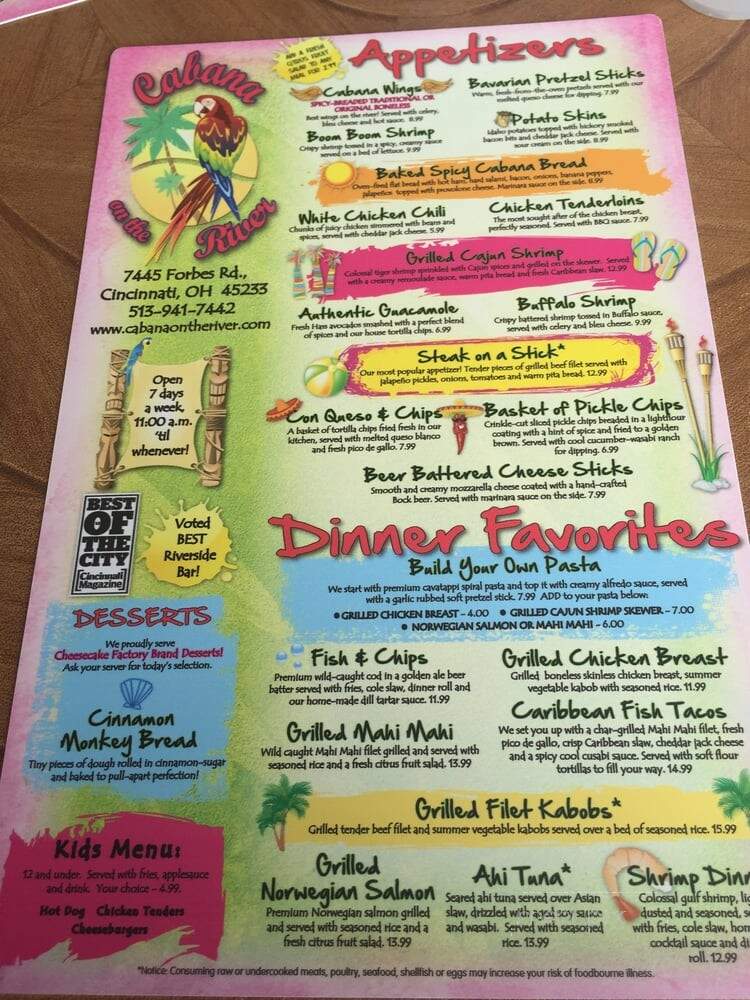 Cabana
on the
River
7445 Forbes Rd.,
Cincinnati, OH 45233
513-941-7442
www.cabanaontheriver.com
Open
7 days
a week,
11:00 a.m.
'til
whenever!
BEST
OF
THE
CITY
Cincinnati
Magazine
Voted
BEST
Riverside
Bar!
DESSERTS
We proudly serve
Cheesecake Factory Brand Desserts!
Ask your server for today's selection.
Cinnamon
Monkey Bread
Tiny pieces of dough rolled in cinnamon-sugar
and baked to pull-apart perfection!
Kids Menu:
12 and under. Served with fries, applesauce
and drink. Your choice - 4.99.
Hot Dog Chicken Tenders
Cheeseburgers
ADD A FRESH
CITRUS FRUIT
SALAD TO ANY
MEAL FOR
Appetizers
Cabana Wings
SPICY-BREADED TRADITIONAL OR
ORIGINAL BONELESS
Best wings on the river! Served with celery,
bleu cheese and hot sauce. 8.99
Bavarian Pretzel Sticks
Warm, fresh-from-the-oven pretzels served with our
melted queso cheese for dipping. 7.99
Boom Boom Shrimp
Crispy shrimp tossed in a spicy, creamy sauce
served on a bed of lettuce. 9.99
Potato Skins
Idaho potatoes topped with hickory smoked
bacon bits and cheddar jack cheese. Served with
sour cream on the side. 8.99
Baked Spicy Cabana Bread
Oven-fired flat bread with hot ham, hard salami, bacon, onions, banana peppers,
jalapeños topped with provolone cheese. Marinara sauce on the side. 8.99
White Chicken Chili
Chunks of juicy chicken simmered with beans and
spices, served with cheddar jack cheese. 5.99
Chicken Tenderloins
The most sought after of the chicken breast,
perfectly seasoned. Served with BBQ sauce. 7.99
Grilled Cajun Shrimp
Colossal tiger shrimp sprinkled with Cajun spices and grilled on the skewer. Served
with a creamy remoulade sauce, warm pita bread and fresh Caribbean slaw. 12.99
Authentic Guacamole
Fresh Hass avocados smashed with a perfect blend
of spices and our house tortilla chips. 6.99
Buffalo Shrimp
Crispy battered shrimp tossed in Buffalo sauce,
served with celery and bleu cheese. 9.99
Steak on a Stick*
Our most popular appetizer! Tender pieces of grilled beef filet served with
jalapeño pickles, onions, tomatoes and warm pita bread. 12.99
Con Queso & Chips
A basket of tortilla chips fried fresh in our
kitchen, served with melted queso blanco
and fresh pico de gallo. 7.99
Basket of Pickle Chips
Crinkle-cut sliced pickle chips breaded in a light flour
coating with a hint of spice and fried to a golden
brown. Served with cool cucumber-wasabi ranch
for dipping. 6.99
Beer Battered Cheese Sticks
Smooth and creamy mozzarella cheese coated with a hand-crafted
Bock beer. Served with marinara sauce on the side. 7.99
Dinner Favorites
Build Your Own Pasta
We start with premium cavatappi spiral pasta and top it with creamy alfredo sauce, served
with a garlic rubbed soft pretzel stick. 7.99 ADD to your pasta below:
• GRILLED CHICKEN BREAST - 4.00 • GRILLED CAJUN SHRIMP SKEWER - 7.00
• NORWEGIAN SALMON OR MAHI MAHI - 6.00
Fish & Chips
Premium wild-caught cod in a golden ale beer
batter served with fries, cole slaw, dinner roll and
our home-made dill tartar sauce. 11.99
Grilled Chicken Breast
Grilled boneless skinless chicken breast, summer
vegetable kabob with seasoned rice. 11.99
Grilled Mahi Mahi
Wild caught Mahi Mahi filet grilled and served with
seasoned rice and a fresh citrus fruit salad. 13.99
Caribbean Fish Tacos
We set you up with a char-grilled Mahi Mahi filet, fresh
pico de gallo, crisp Caribbean slaw, cheddar jack cheese
and a spicy cool cusabi sauce. Served with soft flour
tortillas to fill your way. 14.99
Grilled Filet Kabobs*
Grilled tender beef filet and summer vegetable kabobs served over a bed of seasoned rice. 15.99
Grilled
Norwegian Salmon
Premium Norwegian salmon grilled
and served with seasoned rice and a
fresh citrus fruit salad. 13.99
Ahi Tuna*
Seared ahi tuna served over Asian
slaw, drizzled with aged soy sauce
and wasabi. Served with seasoned
rice. 13.99
Shrimp Dinn
Colossal gulf shrimp, lig
dusted and seasoned, s
with fries, cole slaw, hom
cocktail sauce and di
roll. 12.99
*Notice: Consuming raw or undercooked meats, poultry, seafood, shellfish or eggs may increase your risk of foodbourne illness.